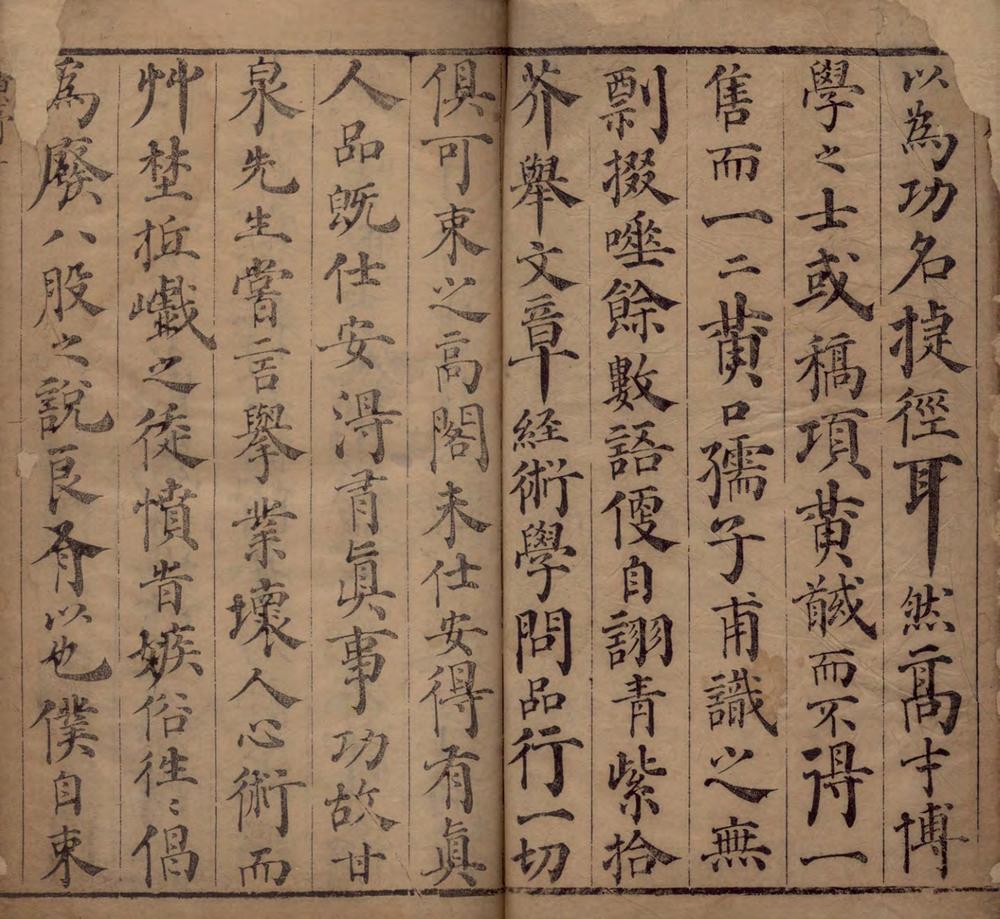 以爲功名捷徑耳然高才博
學之士或稿項黃馘而不得一
售而一二黃口孺子甫識之無
剽掇唾餘數語便自詡青紫拾
芥舉文章経術學問品行一切
俱可束之高閣未仕安得有眞
人品既仕安淂有眞事功故甘
泉先生嘗言舉業壞人心術而
艸埜扺巇之徒憤旹嫉俗徃〻倡
爲廢八股之說良有以也僕自束